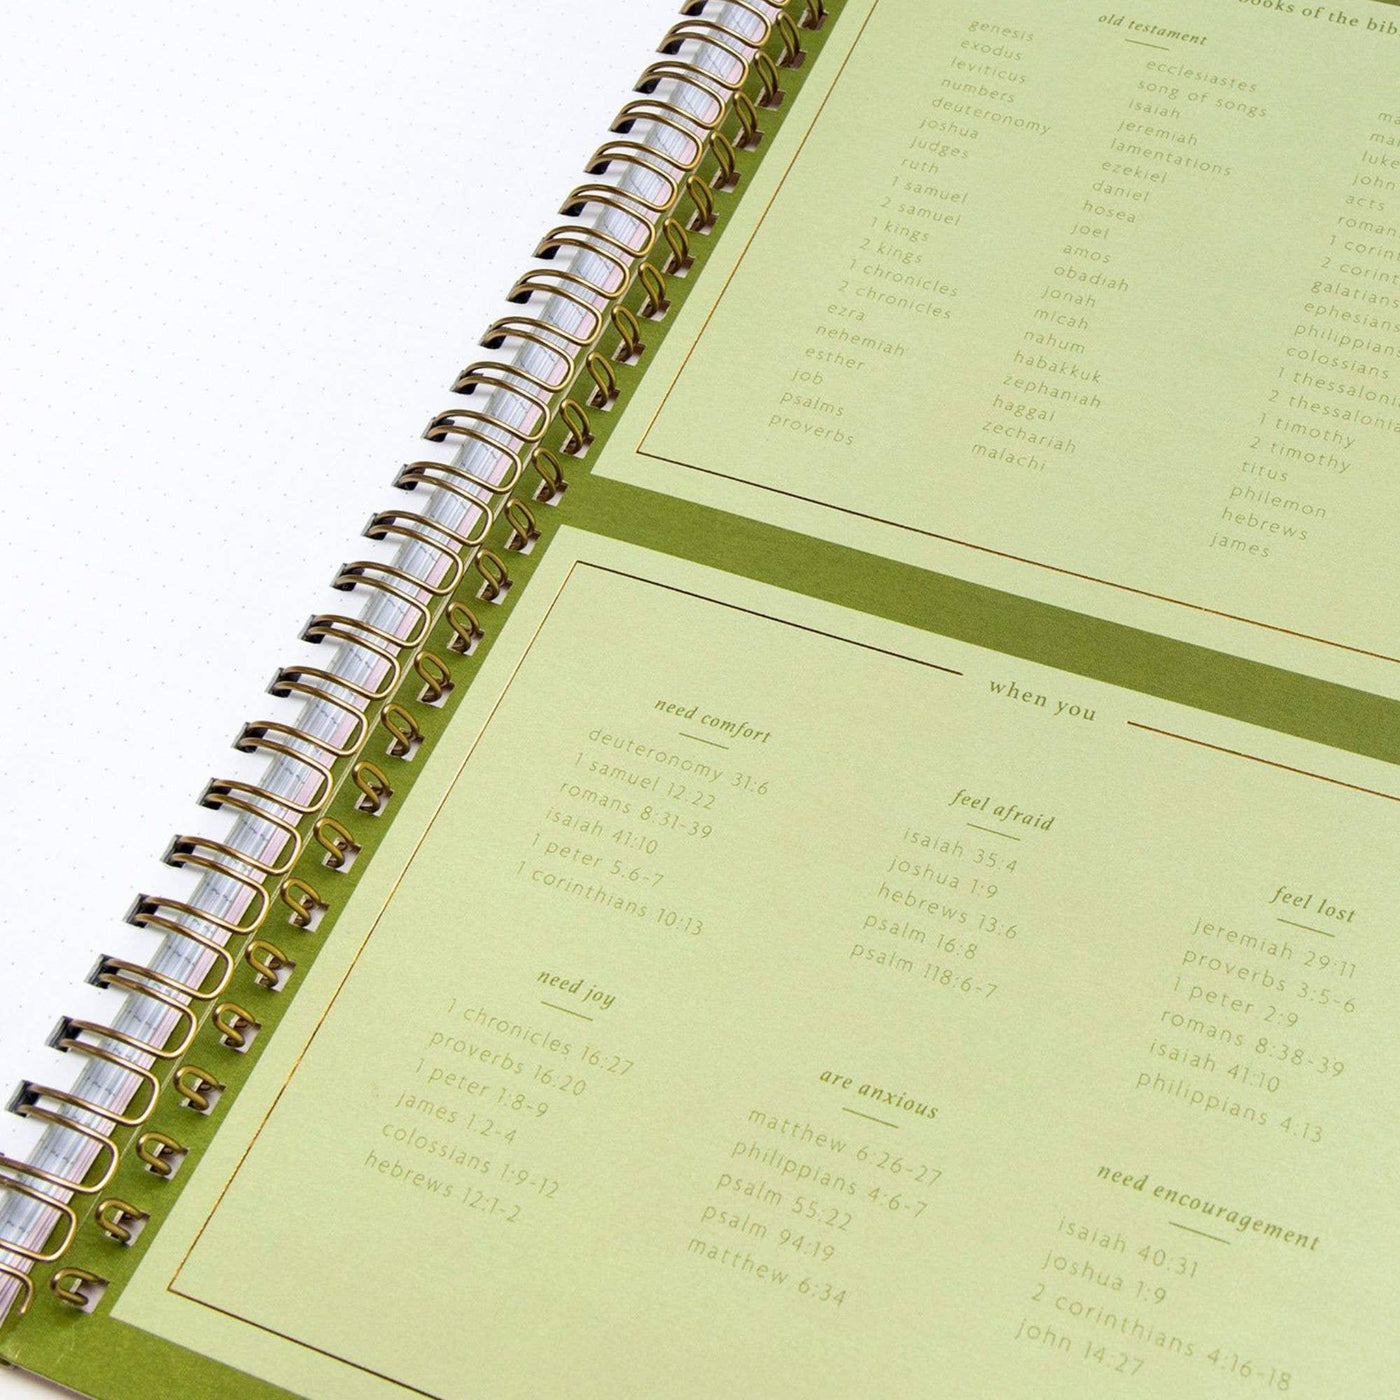 books of the
old testament
genesis
exodus
leviticus
numbers
deuteronomy
joshua
judges
ruth
1 samuel
2 samuel
1 kings
2 kings
1 chronicles
2 chronicles
ezra
nehemiah
esther
job
psalms
proverbs
ecclesiastes
song of songs
isaiah
jeremiah
lamentations
ezekiel
daniel
hosea
joel
amos
obadiah
jonah
micah
nahum
habakkuk
zephaniah
haggai
zechariah
malachi
luke
john
acts
1
2
galatians
colossians
1
2
1 timothy
2 timothy
titus
philemon
hebrews
james
when you
need comfort
deuteronomy 31:6
1 samuel 12:22
romans 8:31-39
isaiah 41:10
1 peter 5:6-7
1 corinthians 10:13
need joy
1 chronicles 16:27
proverbs 16:20
1 peter 1:8-9
james 1:2-4
colossians 1:9-12
hebrews 12:1-2
feel afraid
isaiah 35:4
joshua 1:9
hebrews 13:6
psalm 16:8
psalm 118:6-7
are anxious
matthew 6:26-27
philippians 4:6-7
psalm 55:22
psalm 94:19
matthew 6:34
feel lost
jeremiah 29:11
proverbs 3:5-6
1 peter 2:9
romans 8:38-39
isaiah 41:10
philippians 4:13
need encouragement
isaiah 40:31
joshua 1:9
2 corinthians 4:16-18
john 14:27